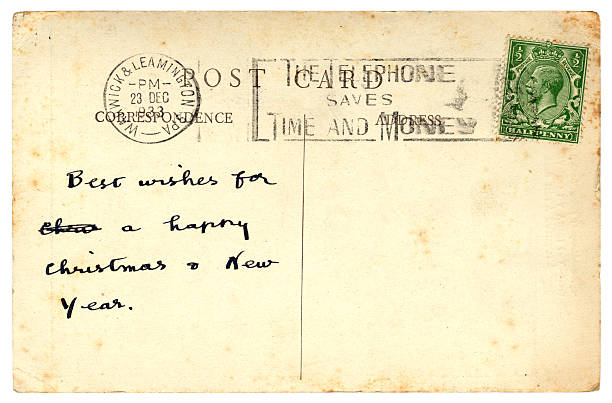 WARWICK & LEAMINGTON SPA
-PM-
23 DEC
1933
POST CARD
THE TELEPHONE
SAVES
TIME AND MONEY
CORRESPONDENCE
ADDRESS
½ ½
HALFPENNY
Best wishes for
a happy
Christmas & New
Year.